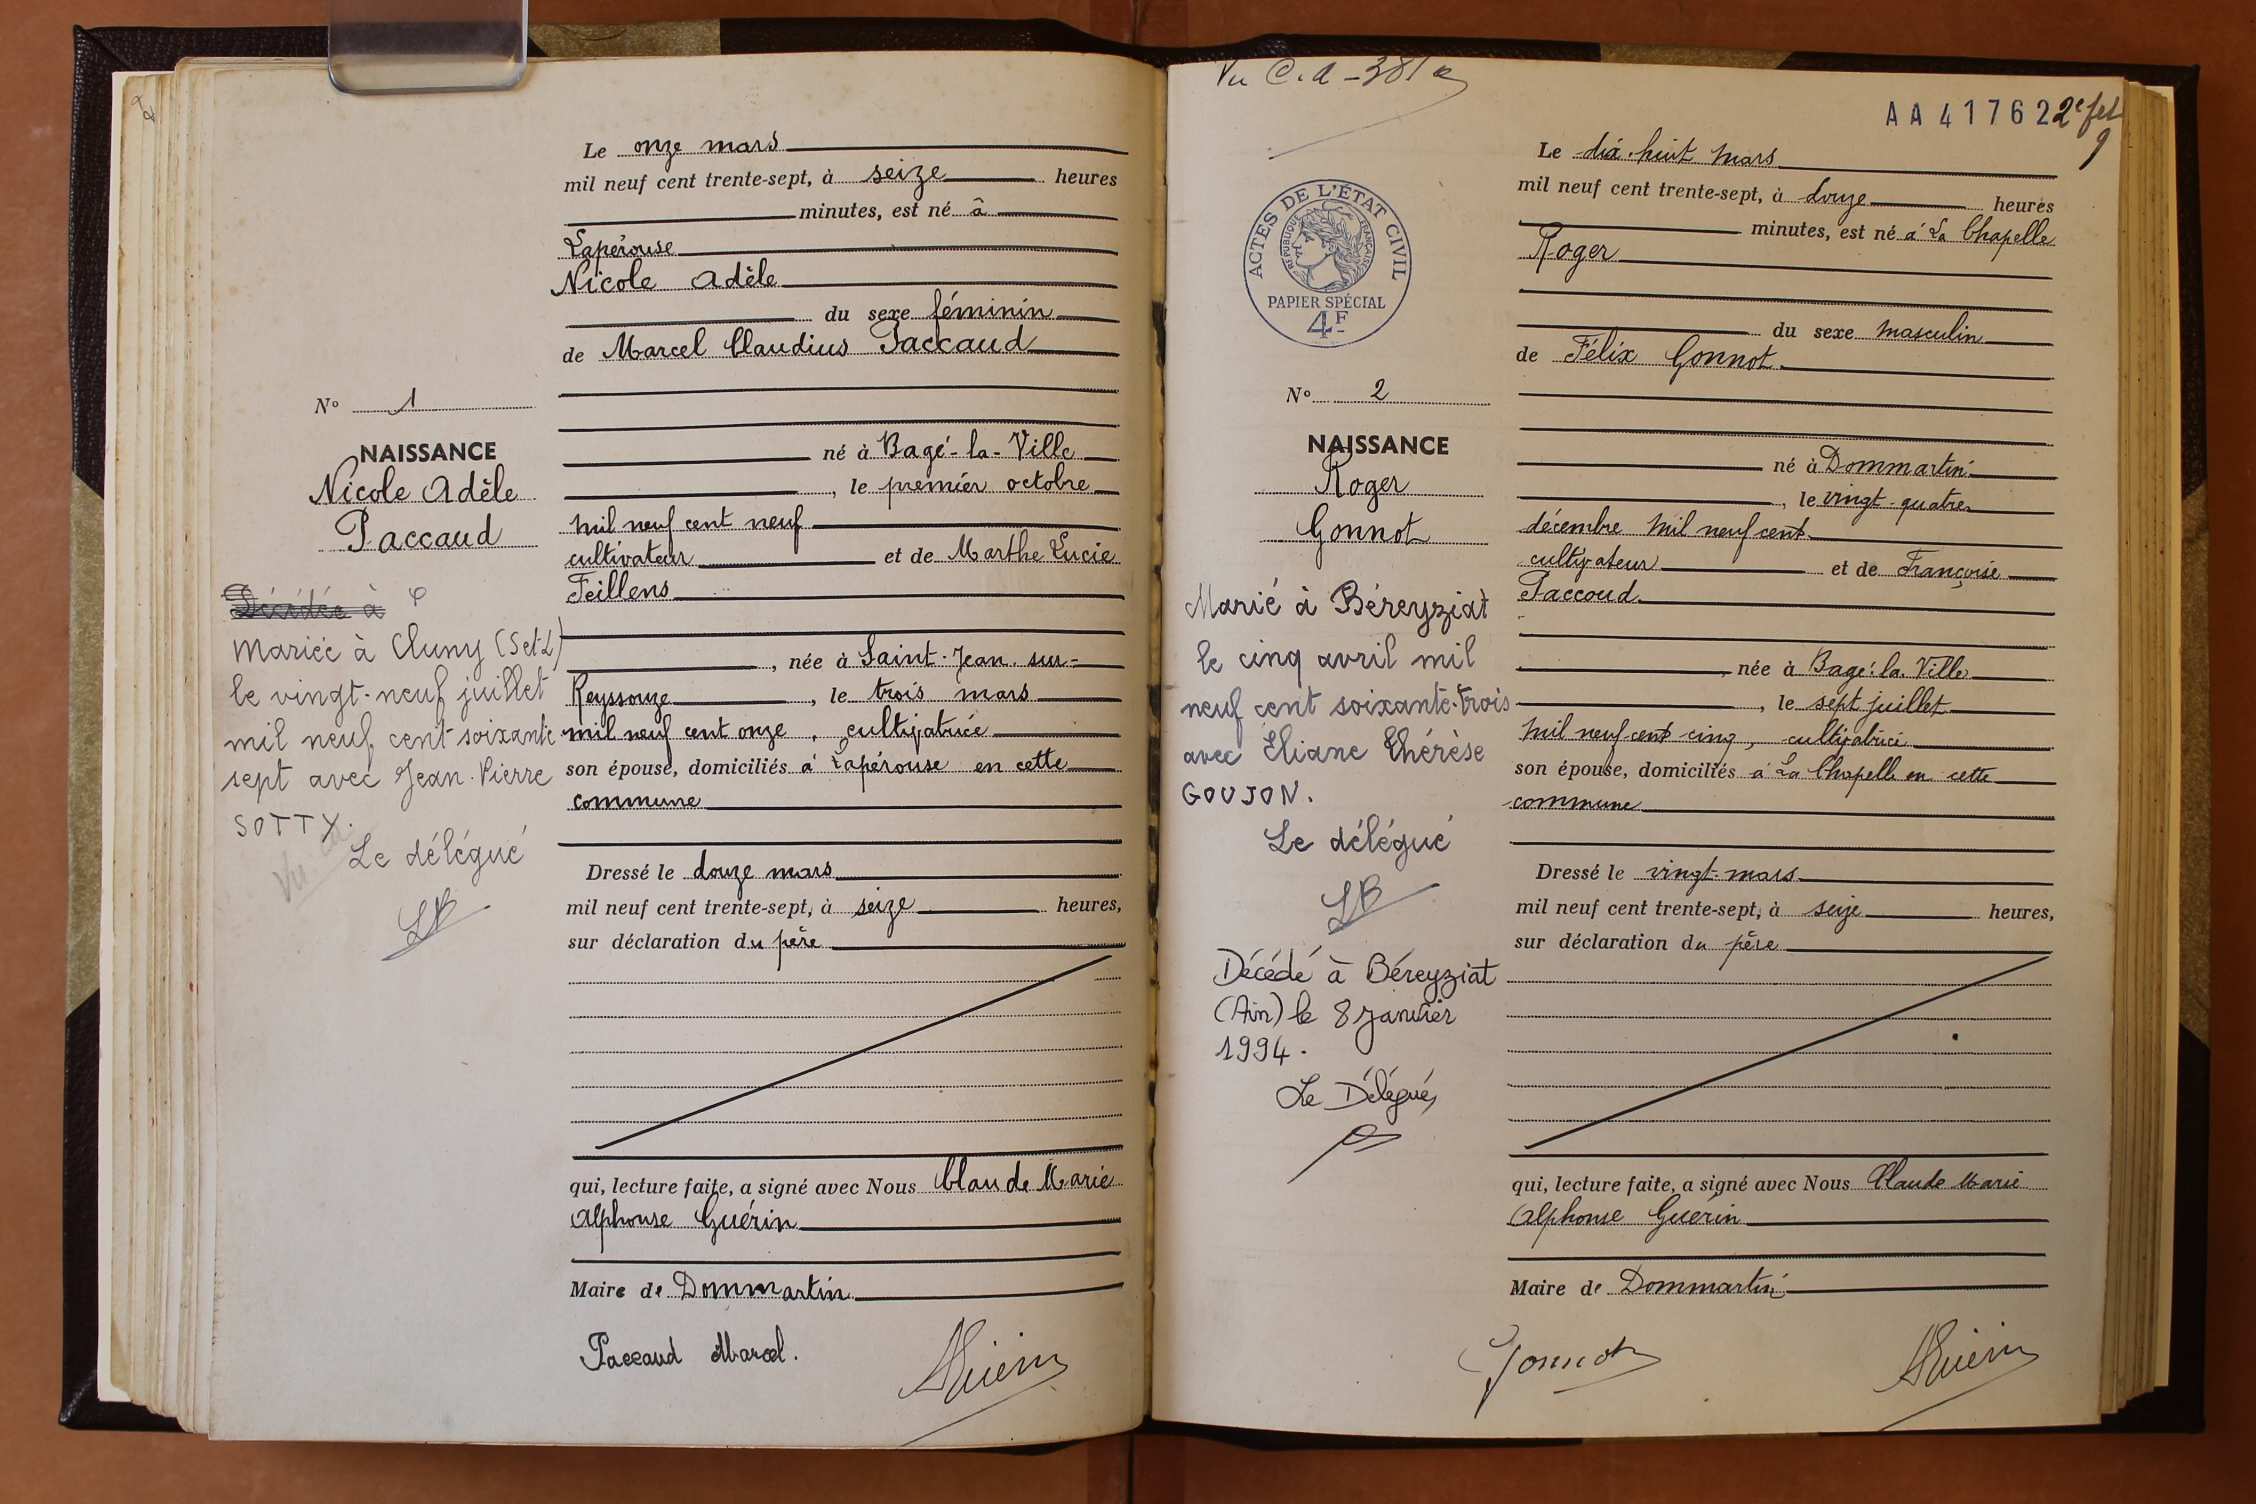 Le onze mars
mil neuf cent trente-sept, à seize heures
minutes, est né à
Lapérouse
Nicole Adèle
du sexe féminin
de Marcel Claudius Paccaud
N° 1
né à Bagé-la-Ville
NAISSANCE
Nicole Adèle
Paccaud
, le premier octobre
mil neuf cent neuf
cultivateur et de Marthe Lucie
Feillens
Décédée à
Mariée à Cluny (S et L)
le vingt-neuf juillet
mil neuf cent soixante
sept avec Jean-Pierre
SOTTY.
Le délégué
, née à Saint-Jean-sur-
Reyssouze, le trois mars
mil neuf cent onze, cultivatrice
son épouse, domiciliés à Lapérouse en cette
commune
Dressé le douze mars
mil neuf cent trente-sept, à seize heures,
sur déclaration du père
qui, lecture faite, a signé avec Nous Claude Marie
Alphonse Guérin
Maire de Dommartin
Paccaud Marcel.
AGuérin
Vu C.A - 381
AA 41762
2e fet
9
ACTES DE L'ÉTAT CIVIL
RÉPUBLIQUE FRANÇAISE
PAPIER SPÉCIAL
4F
Le dix-huit mars
mil neuf cent trente-sept, à douze heures
minutes, est né à La Chapelle
Roger
du sexe masculin
de Félix Gonnot
N° 2
NAISSANCE
Roger
Gonnot
né à Dommartin
, le vingt-quatre
décembre mil neuf cent
cultivateur et de Françoise
Paccoud
Marié à Béreyziat
le cinq avril mil
neuf cent soixante-trois
avec Eliane Thérèse
GOUJON.
Le délégué
Décédé à Béreyziat
(Ain) le 8 Janvier
1994.
Le Délégué,
née à Bagé-la-Ville
, le sept juillet
mil neuf cent cinq, cultivatrice
son épouse, domiciliés à La Chapelle en cette
commune
Dressé le vingt mars
mil neuf cent trente-sept, à seize heures,
sur déclaration du père
qui, lecture faite, a signé avec Nous Claude Marie
Alphonse Guérin
Maire de Dommartin
Gonnot
AGuérin